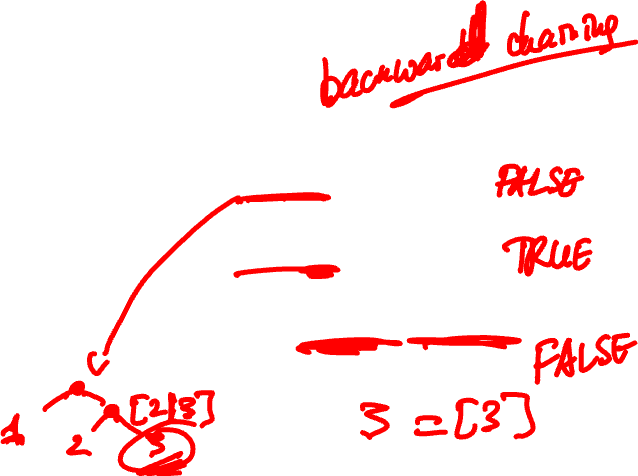 backward chaining
FALSE
TRUE
FALSE
[2|3]
1
2
3
3 = [3]